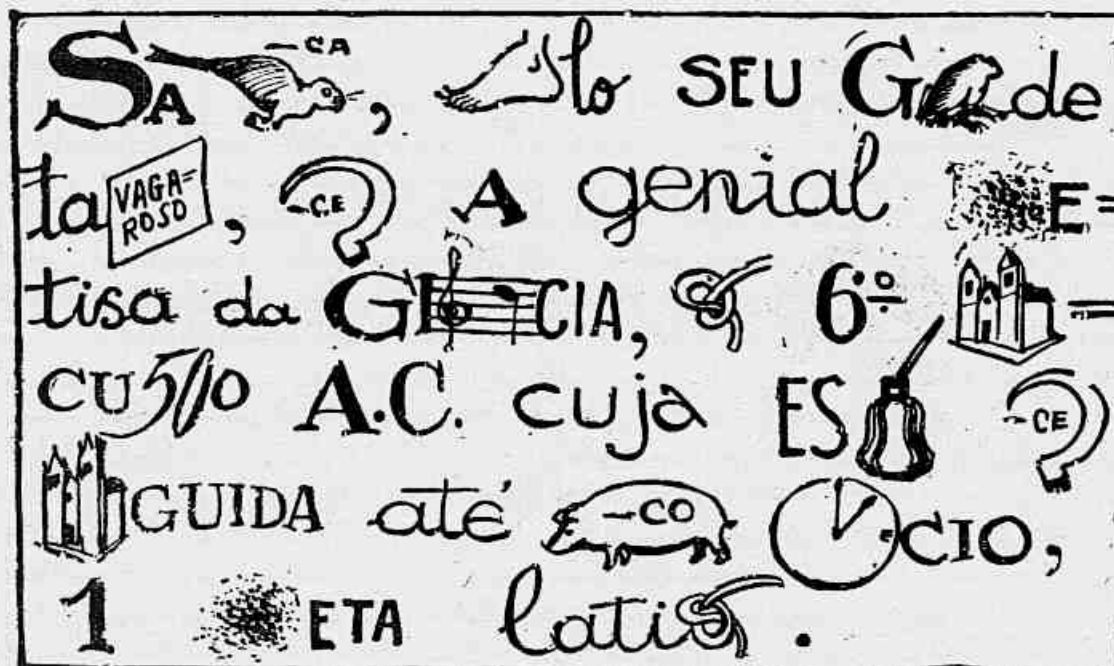 SA -CA, lo SEU G de
ta VAGA=ROSO, -CE A genial E=
tisa da G CIA, 6º =
CU 500 A.C. cuja ES -CE
GUIDA até -CO CIO,
1 ETA lati.